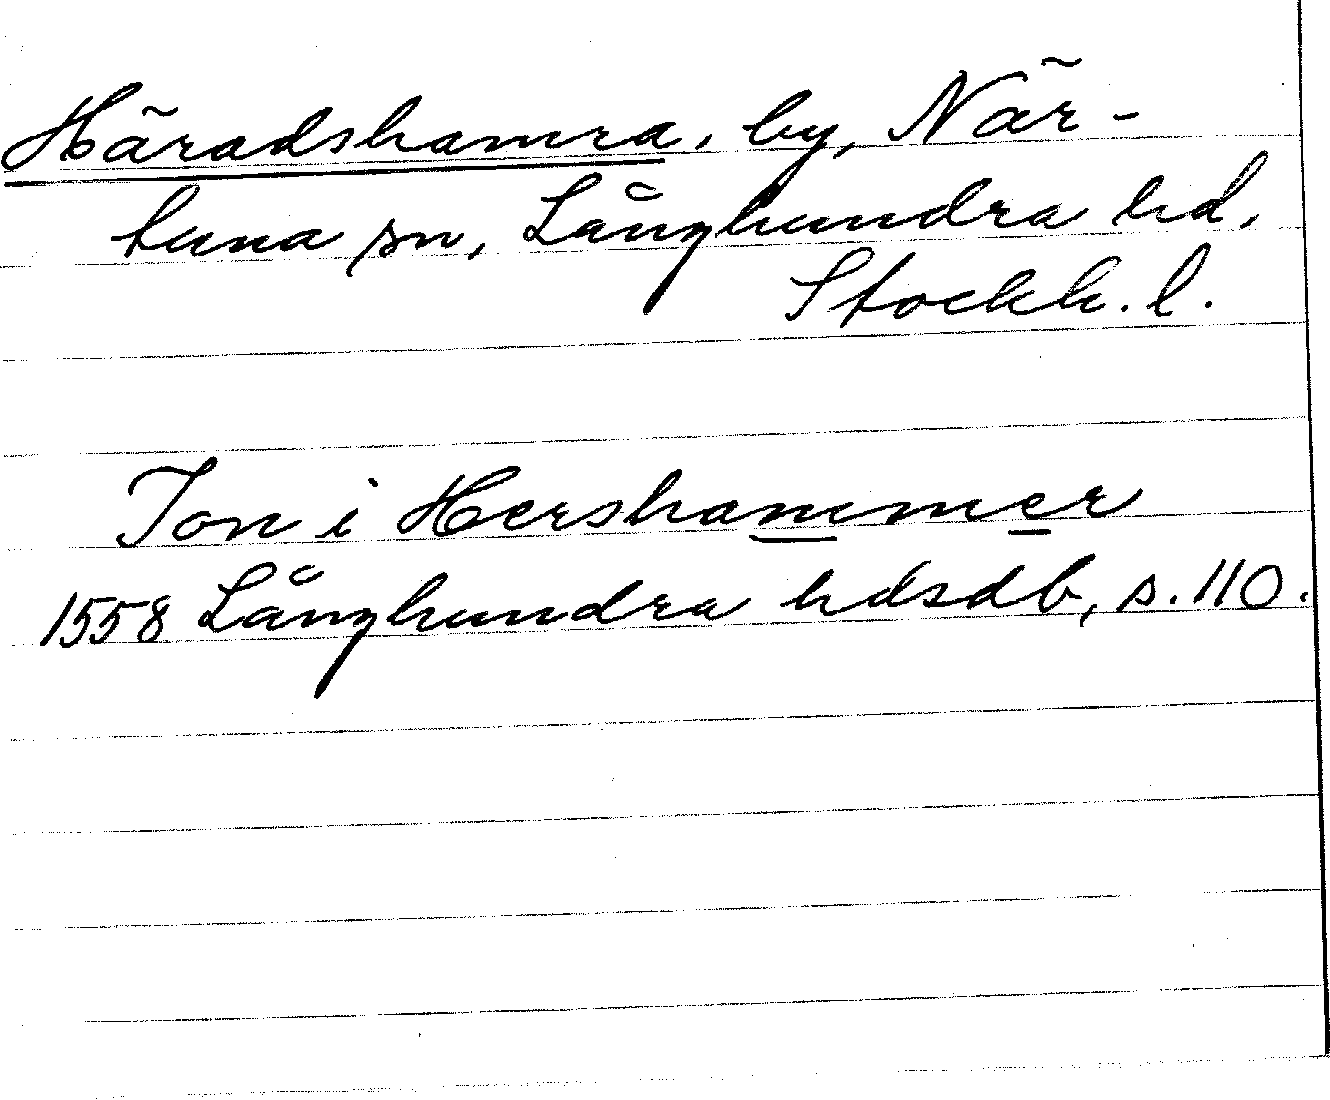 Häradshamra, by, När-
tuna sn, Långhundra hd,
Stockh. l.
Jon i Hershammer
1558 Långhundra hdsdb, s. 110.